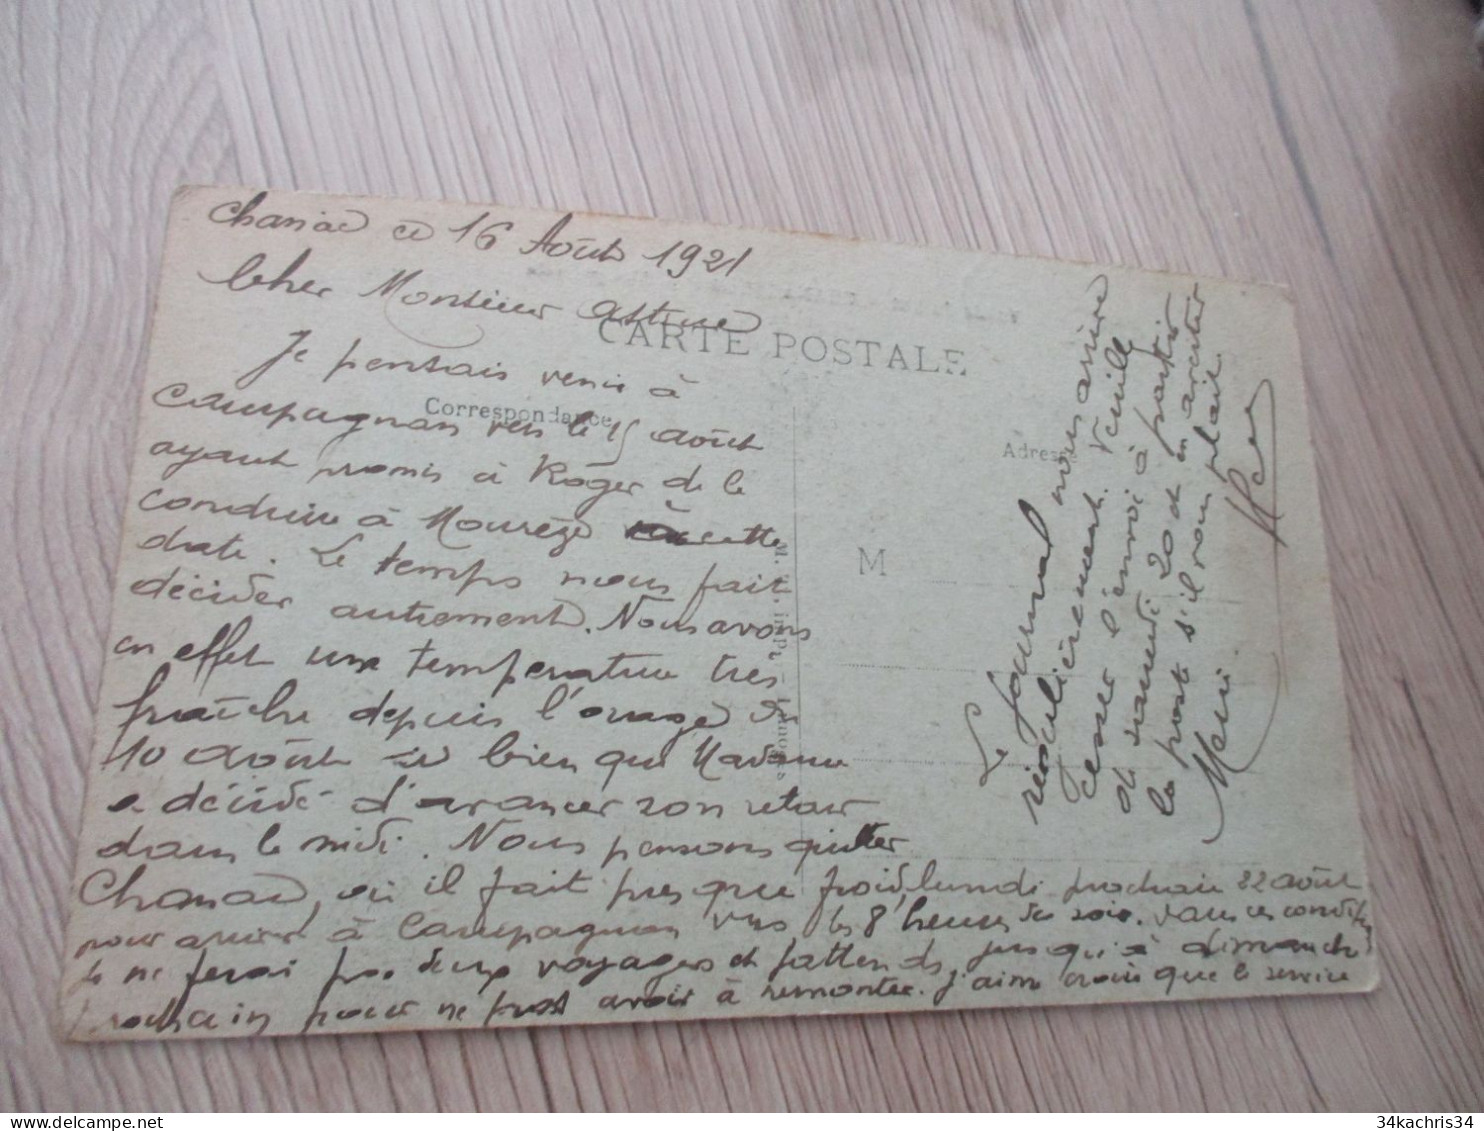 Chanac ce 16 Août 1921
Cher Monsieur Astruc
CARTE POSTALE
Je pensais venir à
Correspondance
Campagnan vers le 15 août
ayant promis à Roger de le
conduire à Mourèze à cette
date. Le temps nous fait
décider autrement. Nous avons
en effet une température très
fraîche depuis l'orage du
10 août si bien que Madame
a décidé d'avancer son retour
dans le midi. Nous pensons quitter
Chanac, où il fait presque froid, lundi prochain 22 août
pour arriver à Campagnan vers les 8 heures du soir. Dans ces conditions
je ne ferai pas deux voyages et j'attends jusqu'à dimanche
prochain pour ne pas avoir à remonter. J'aime croire que le service
Adresse
M
Le journal nous arrive
régulièrement. Veuillez
cesser l'envoi à partir
de samedi 20 et en arrêter
la poste s'il vous plait
Merci.
34kachris34